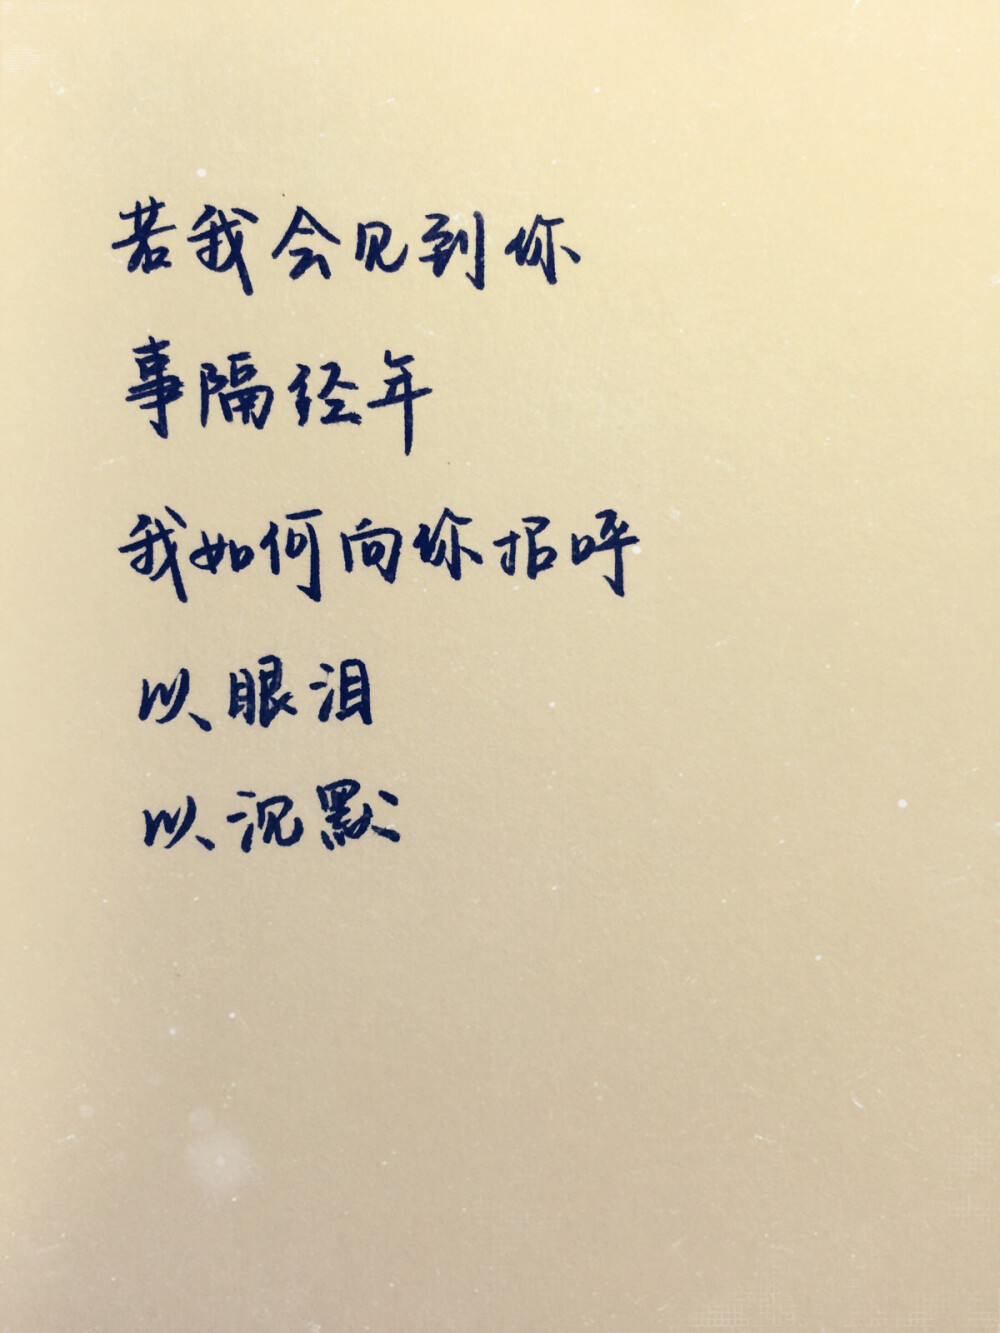 若我会见到你
事隔经年
我如何向你招呼
以眼泪
以沉默